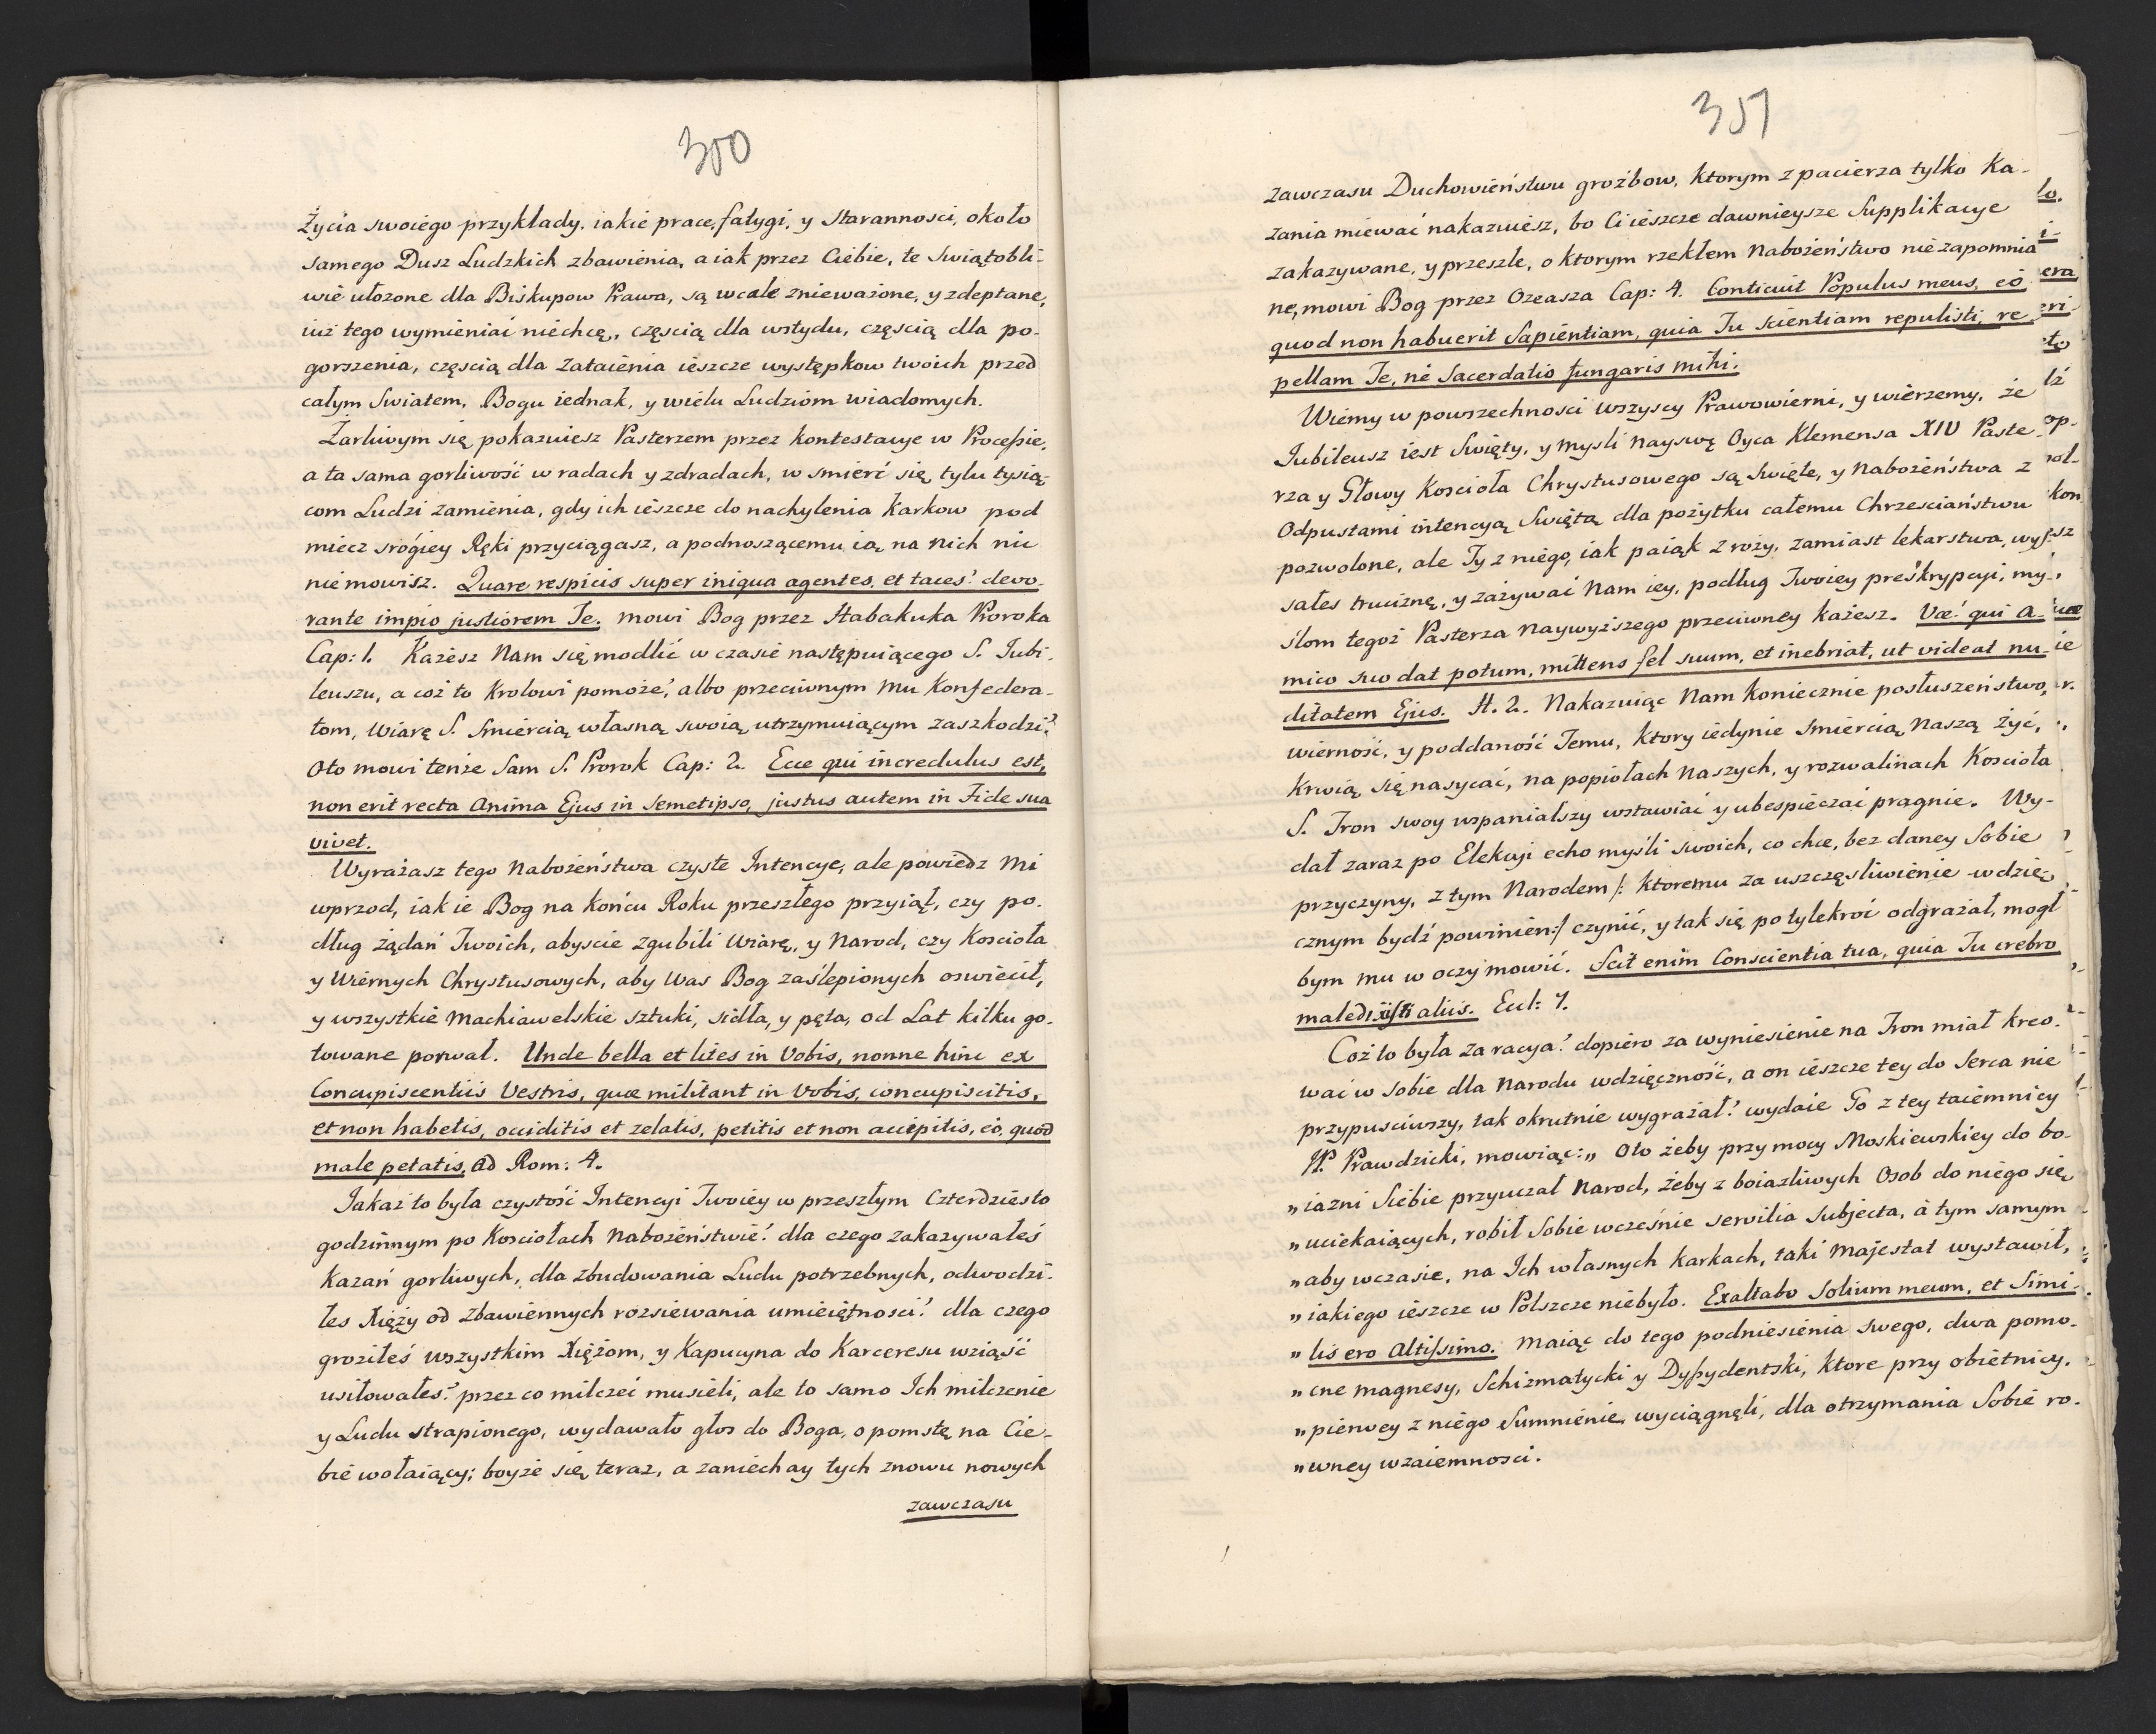 350
Życia swoiego przykłady, iakie prace, fatygi, y Starannosci, około
samego Dusz Ludzkich zbawienia, a iak przez Ciebie, te Swiątobli-
wie ułożone dla Biskupow Prawa, są wcale znieważone, y zdeptane,
iuż tego wymieniać niechcę, częscią dla wstydu, częscią dla po-
gorszenia, częscią dla zataienia ieszcze występkow twoich przed
całym Swiatem, Bogu iednak, y wielu Ludziom wiadomych.
Żarliwym się pokazuiesz Pasterzem przez kontestacye w Processie,
a ta sama gorliwość w radach y zdradach, w smierć się tylu tysią-
com Ludzi zamienia, gdy ich ieszcze do nachylenia Karkow pod
miecz srogiey Ręki przyciągasz, a podnoszącemu ią na nich nic
nie mowisz. Quare respicis super iniqua agentes, et taces? devo-
rante impio justiorem Te. mowi Bog przez Habakuka Proroka
Cap: 1. Każesz Nam się modlić w czasie następuiącego S. Iubi-
leuszu, a coż to Krolowi pomoże, albo przeciwnym Mu Konfedera-
tom, Wiarę S. Smiercią własną swoią utrzymuiącym zaszkodzi?
Oto mowi tenże Sam S. Prorok Cap: 2. Ecce qui incredulus est,
non erit recta Anima Ejus in Semetipso, justus autem in Fide sua
vivet.
Wyrażasz tego Nabożeństwa czyste Intencye, ale powiedz Mi
wprzod, iakie Bog na końcu Roku przeszłego przyiął, czy po-
dług żądań Twoich, abyscie zgubili Wiarę, y Narod, czy Koscioła
y Wiernych Chrystusowych, aby Was Bog zaślepionych oswiecił,
y wszystkie Machiawelskie sztuki, sidła, y pęta, od Lat kilku go-
towane porwał. Unde bella et lites in Vobis, nonne hinc ex
Concupiscentiis Vestris, quæ militant in Vobis, concupiscitis,
et non habetis, occiditis et zelatis, petitis et non accipitis, eò, quod
male petatis, Ad Rom: 4.
Jakaż to była czystość Intencyi Twoiey w przeszłym Czterdziesto
godzinnym po Kosciołach Nabożeństwie? dla czego zakazywałeś
Kazań gorliwych, dla zbudowania Ludu potrzebnych, odwodzi-
łes Xięży od zbawiennych rozsiewania umieiętnosci? dla czego
groziłeś wszystkim Xiężom, y Kapucyna do Karceresu wziąść
usiłowałes? przez co milczeć musieli, ale to samo Ich milczenie
y Ludu strapionego, wydawało głos do Boga, o pomstę na Cie-
bie wołaiący; boyże się teraz, a zaniechay tych znowu nowych
zawczasu
351
zawczasu Duchowieństwu groźbow, Ktorym z pacierza tylko Ka-
zania miewać nakazuiesz, bo Ci ieszcze dawnieysze Supplikacye
zakazywane, y przeszłe, o ktorym rzekłem Nabożeństwo nie zapomnia
ne, mowi Bog przez Ozeasza Cap: 4. Conticuit Populus meus, eò
quod non habuerit Sapientiam, quia Tu scientiam repulisti, re
pellam Te, nè Sacerdatio fungaris mihi.
Wiemy w powszechnosci wszyscy Prawowierni, y wierzemy, że
Iubileusz iest Swięty, y mysli Nayswę Oyca Klemensa XIV Paste-
rza y Głowy Koscioła Chrystusowego są Swięte, y Nabożeństwa z
Odpustami intencyą Swiętą dla pożytku całemu Chrzesciaństwu
pozwolone, ale Ty z niego, iak paiąk z roży, zamiast lekarstwa, wys-
sałes truciznę, y zażywać Nam iey, podług Twoiey preskrypcyi, my-
slom tegoż Pasterza Naywyższego przeciwney każesz. Væ! qui a-
mico suo dat potum, mittens fel suum, et inebriat, ut videat nu-
ditatem Ejus. H. 2. Nakazuiąc Nam koniecznie posłuszeństwo,
wierność, y poddaność Temu, Ktory iedynie Smiercią Naszą żyć,
Krwią się nasycać, na popiołach Naszych, y rozwalinach Koscioła
S. Tron swoy wspanialszy wstawiać y ubespieczać pragnie. Wy-
dał zaraz po Elekcyi echo myśli swoich, co chce, bez daney Sobie
przyczyny, z tym Narodem /: Ktoremu za uszczęsliwienie wdzię-
cznym bydź powinien:/ czynić, y tak się po tylekroć odgrażał, mogł
bym mu w oczy mowić. Scit enim Conscientia tua, quia Tu crebro
maledixisti aliis. Eccl: 7.
Coż to była za racya? dopiero za wyniesienie na Tron miał kreo-
wać w Sobie dla Narodu wdzięczność, a on ieszcze tey do Serca nie
przypusciwszy, tak okrutnie wygrażał? wydaie Go z tey taiemnicy
W. Prawdzicki, mowiąc: „Oto żeby przy mocy Moskiewskiey do bo-
„iazni Siebie przyuczał Narod, żeby z boiazliwych Osob do niego się
„uciekaiących, robił Sobie wcześnie servilia Subjecta, à tym samym
„aby wczasie, na Ich własnych karkach, taki Majestat wystawił,
„iakiego ieszcze w Polszcze niebyło. Exaltabo Solium meum, et Simi-
„lis ero Altissimo. Maiąc do tego podniesienia swego, dwa pomo-
„cne magnesy, Schizmatycki y Dyssydentski, ktore przy obietnicy,
„pierwey z niego Sumnienie wyciągnęli, dla otrzymania Sobie ro-
„wney wzaiemnosci.